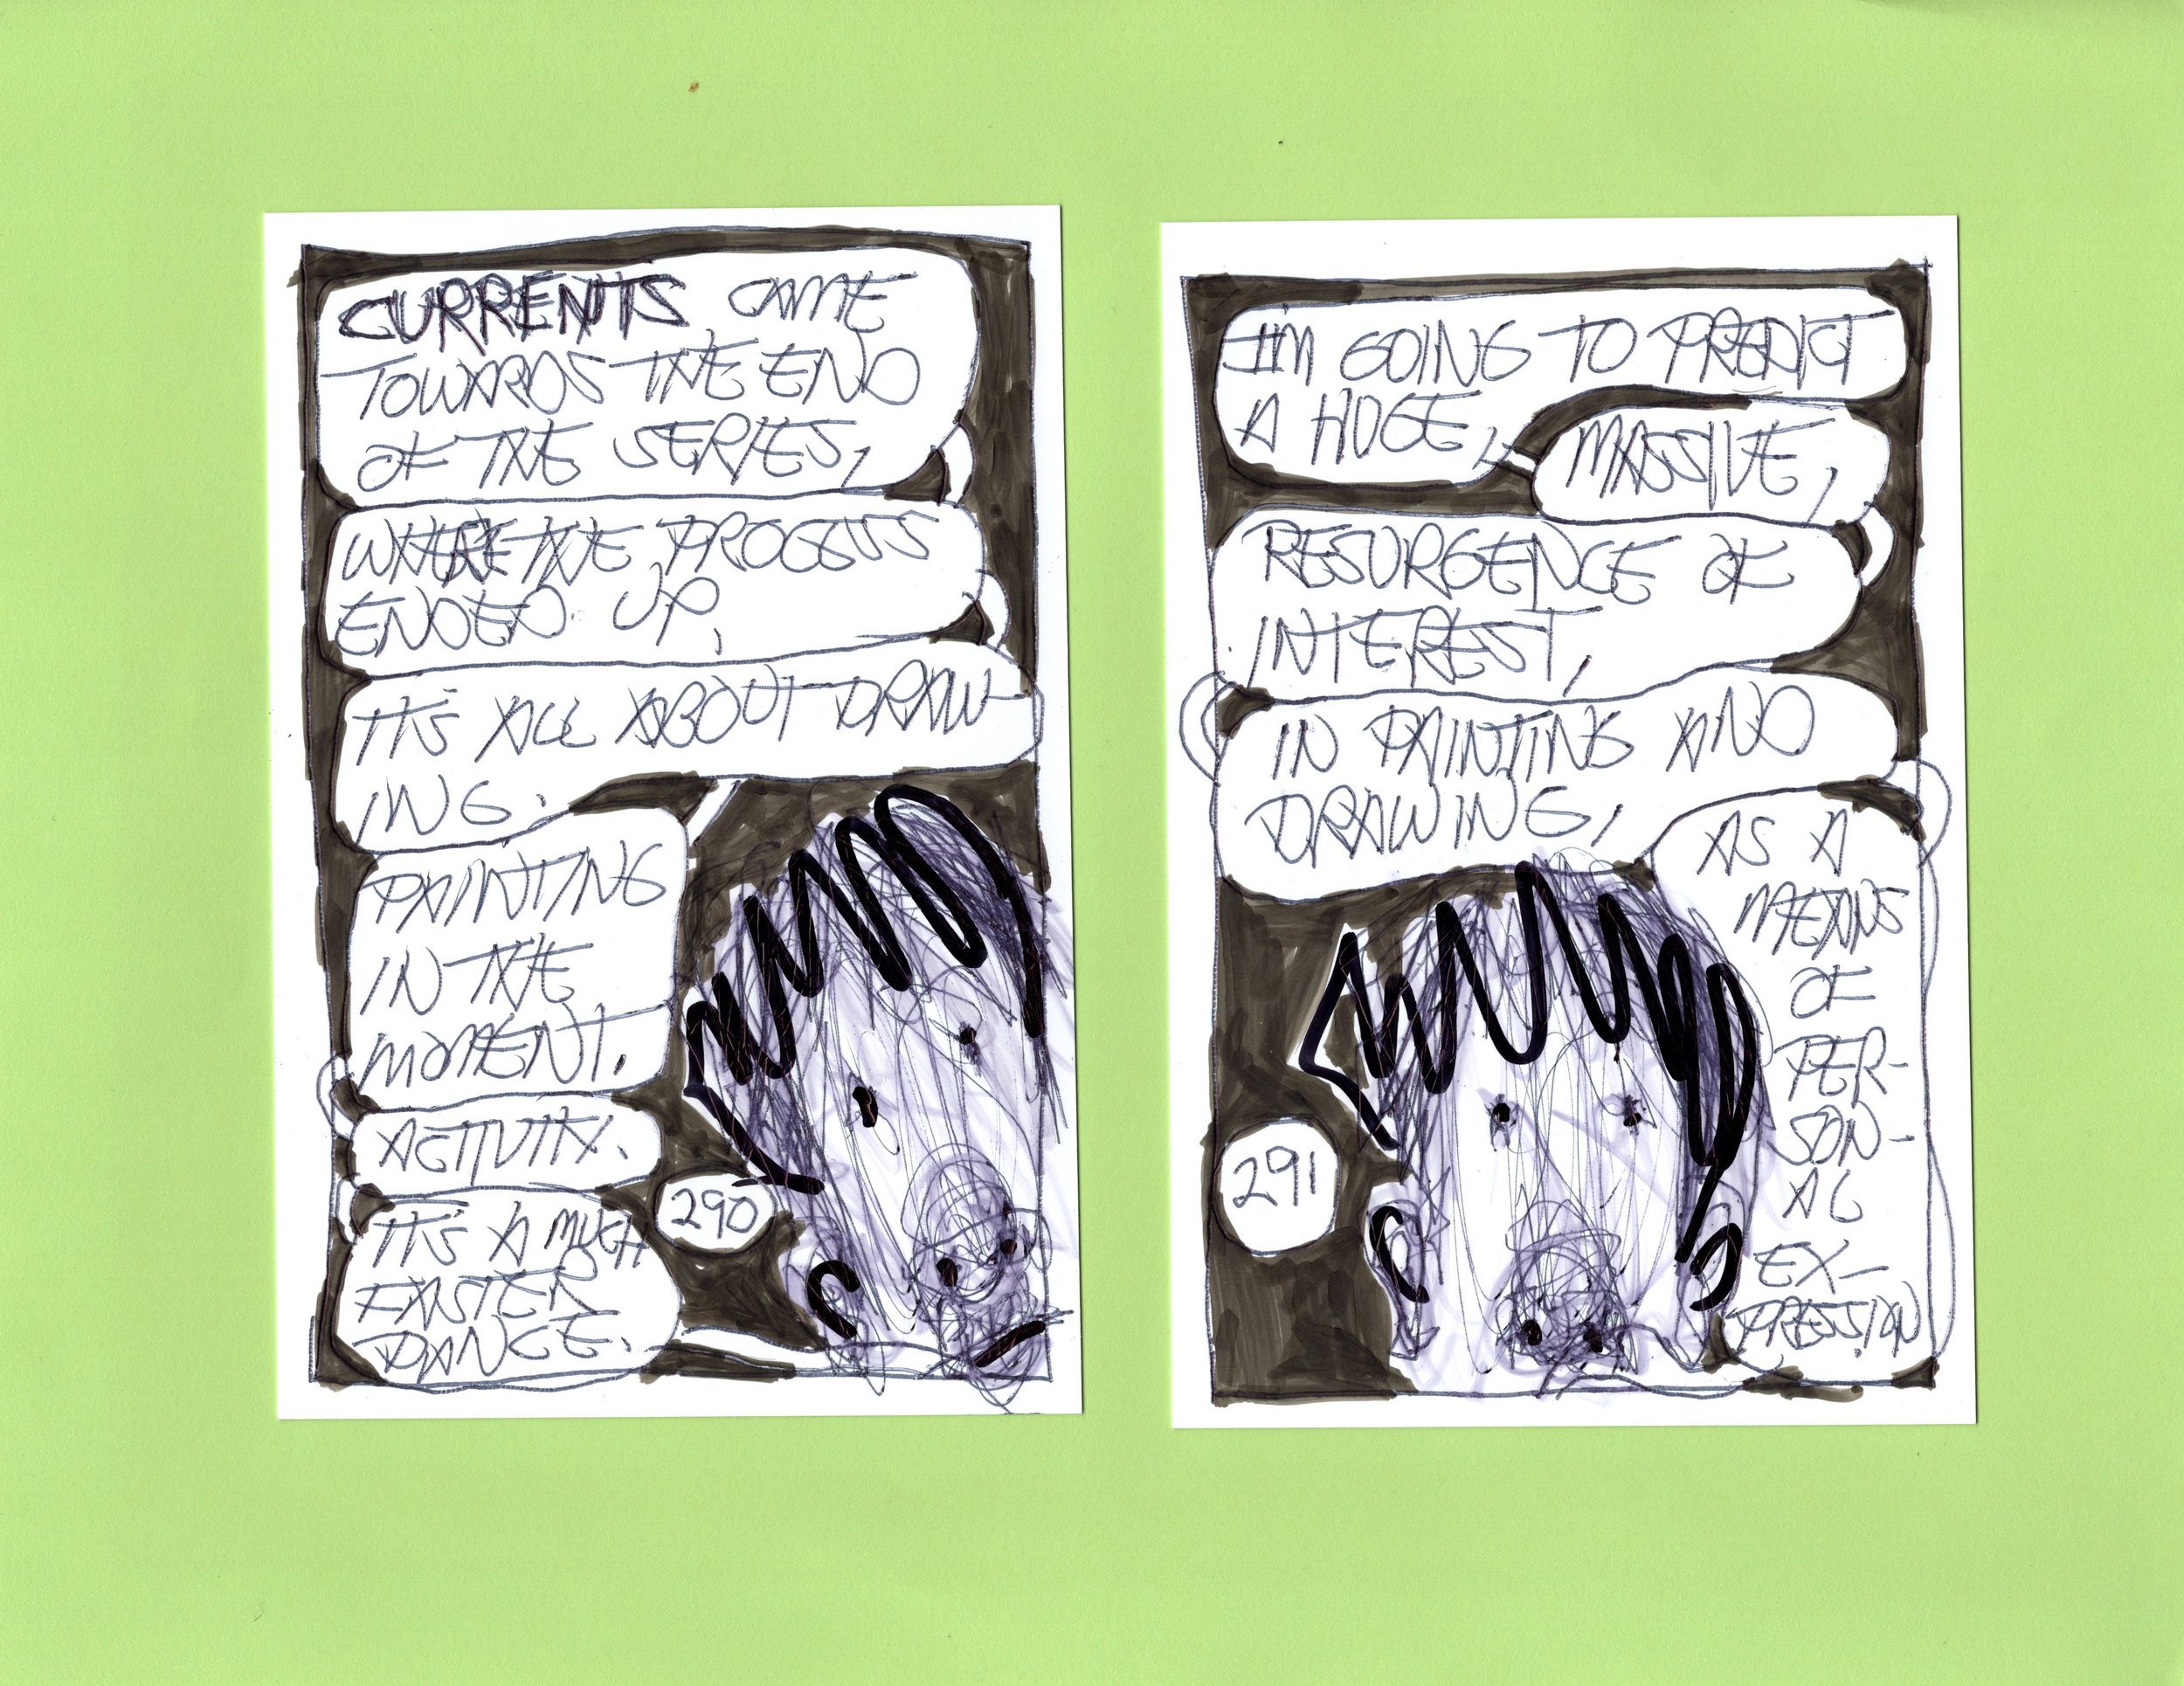 CURRENTS CAME
TOWARDS THE END
OF THE SERIES,
WHERE THE PROCESS
ENDED UP,
IT'S ALL ABOUT DRAW-
ING.
PAINTING
IN THE
MOMENT.
ACTIVITY.
IT'S A MUCH
FASTER
DANCE.
290
I'M GOING TO PREDICT
A HUGE,
MASSIVE,
RESURGENCE OF
INTEREST,
IN PAINTING AND
DRAWING,
AS A
MEANS
OF
PER-
SON-
AL
EX-
PRESSION
291